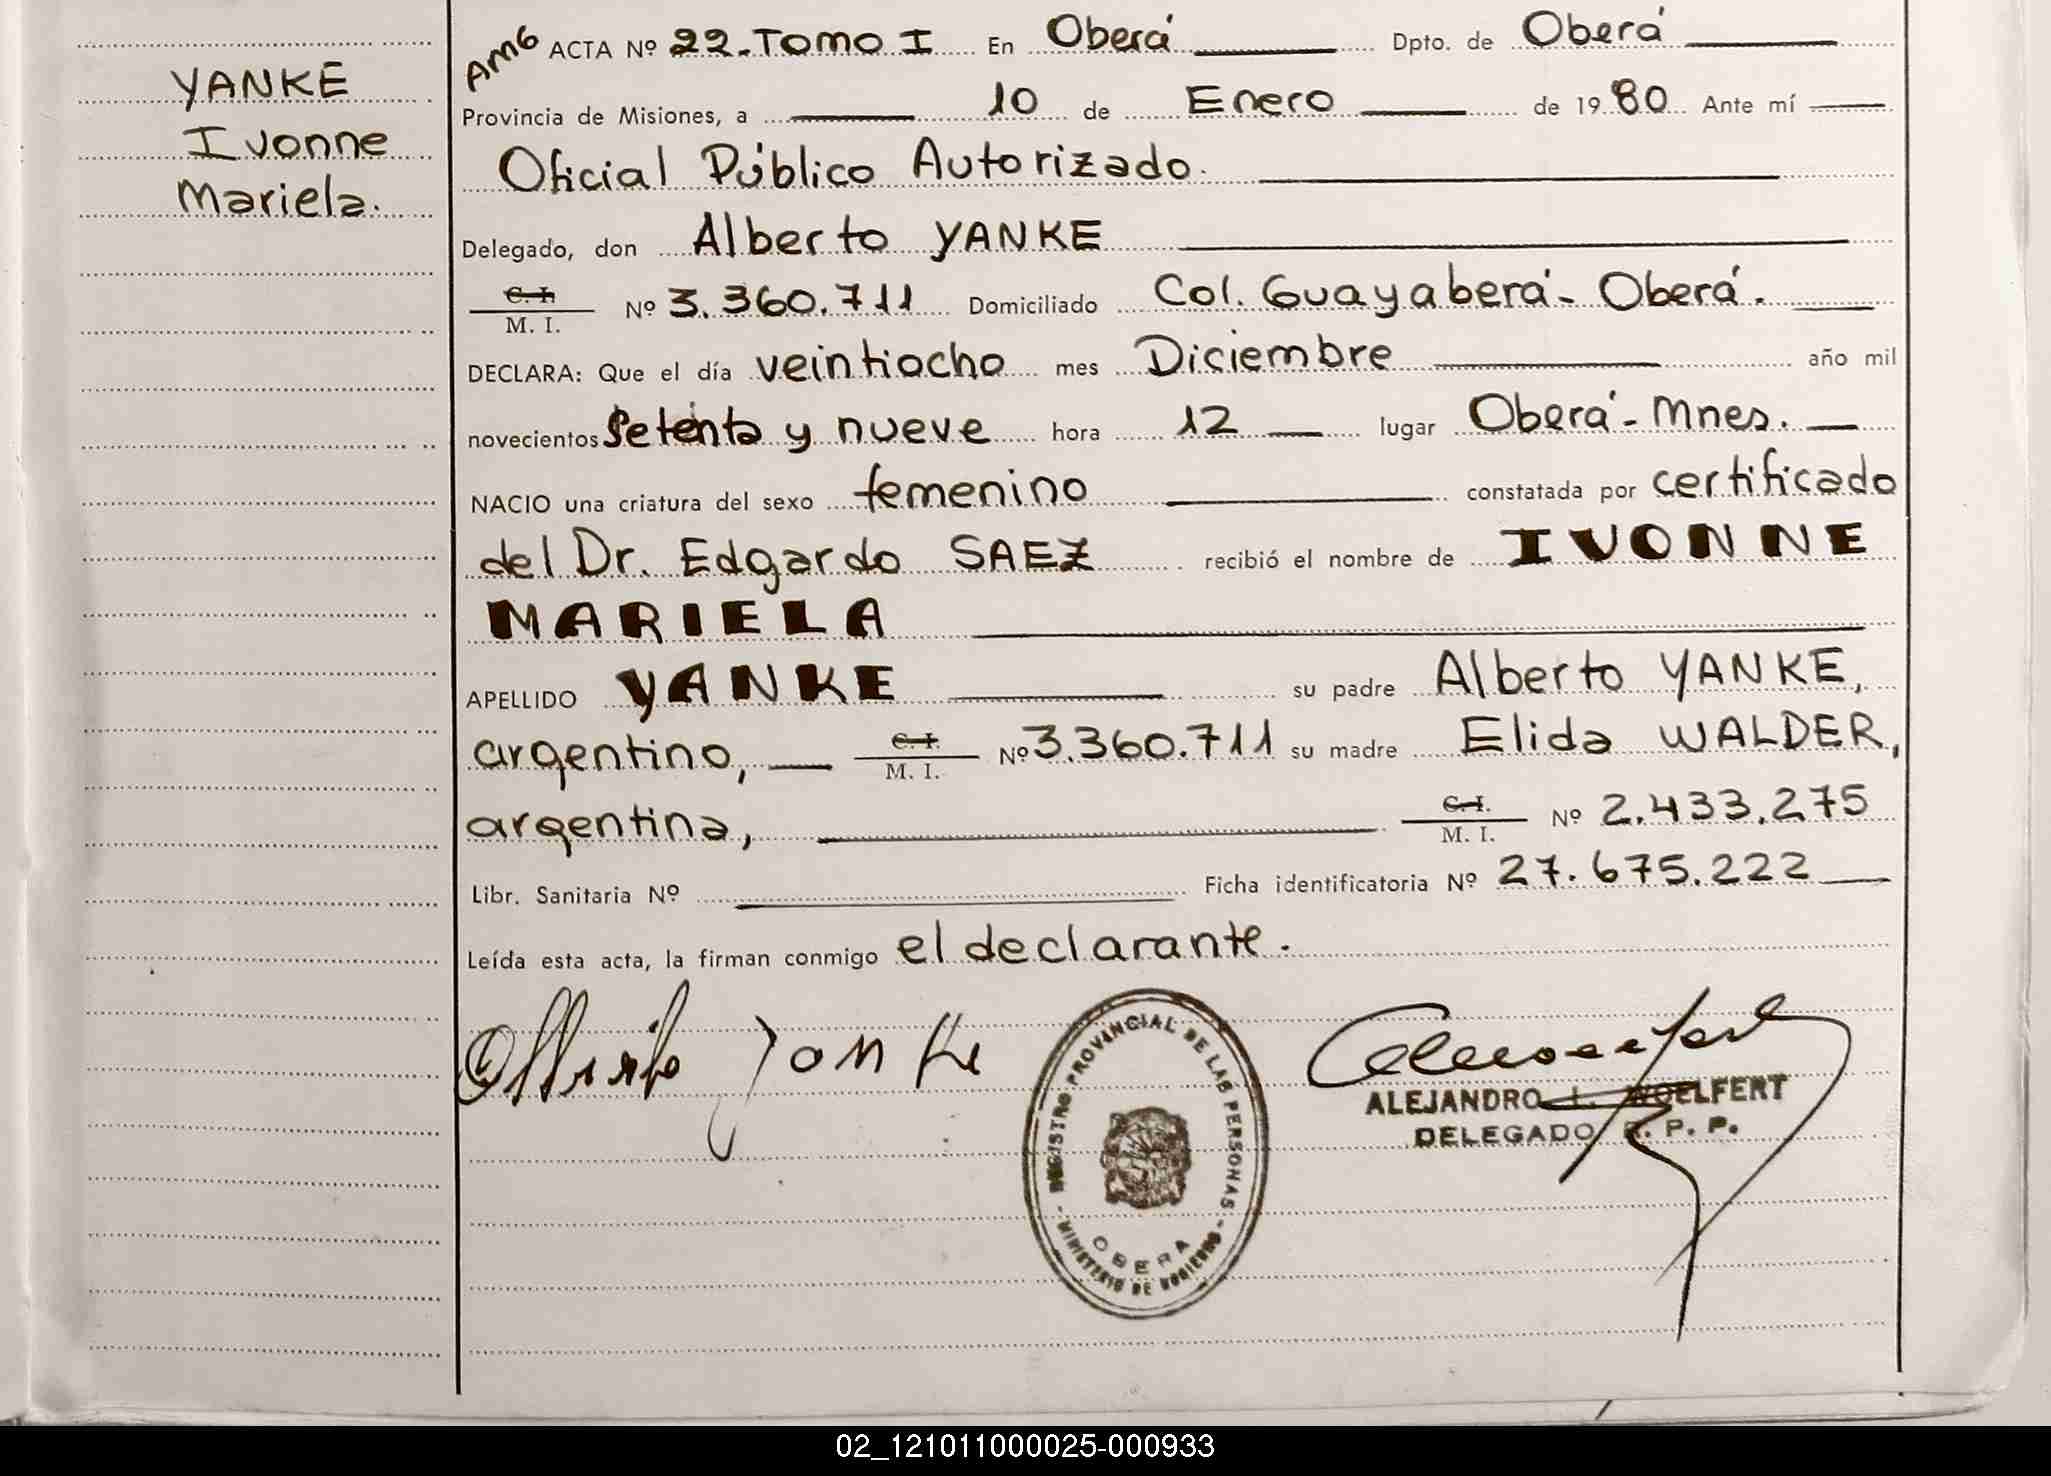 YANKE
Ivonne
Mariela.
AMG ACTA Nº 22-Tomo I En Oberá Dpto. de Oberá
Provincia de Misiones, a 10 de Enero de 1980 Ante mí
Oficial Público Autorizado.
Delegado, don Alberto YANKE
C. I. / M. I. Nº 3.360.711 Domiciliado Col. Guayaberá - Oberá.
DECLARA: Que el día veintiocho mes Diciembre año mil
novecientos Setenta y nueve hora 12 lugar Oberá - Mnes.
NACIO una criatura del sexo femenino constatada por certificado
del Dr. Edgardo SAEZ recibió el nombre de IVONNE
MARIELA
APELLIDO YANKE su padre Alberto YANKE,
argentino, C. I. / M. I. Nº 3.360.711 su madre Elida WALDER,
argentina, C. I. / M. I. Nº 2.433.275
Libr. Sanitaria Nº Ficha identificatoria Nº 27.675.222
Leída esta acta, la firman conmigo el declarante.
Alberto Yanke
REGISTRO PROVINCIAL DE LAS PERSONAS - MINISTERIO DE GOBIERNO -
OBERA
ALEJANDRO L. WOELFERT
DELEGADO R. P. P.
02_121011000025-000933